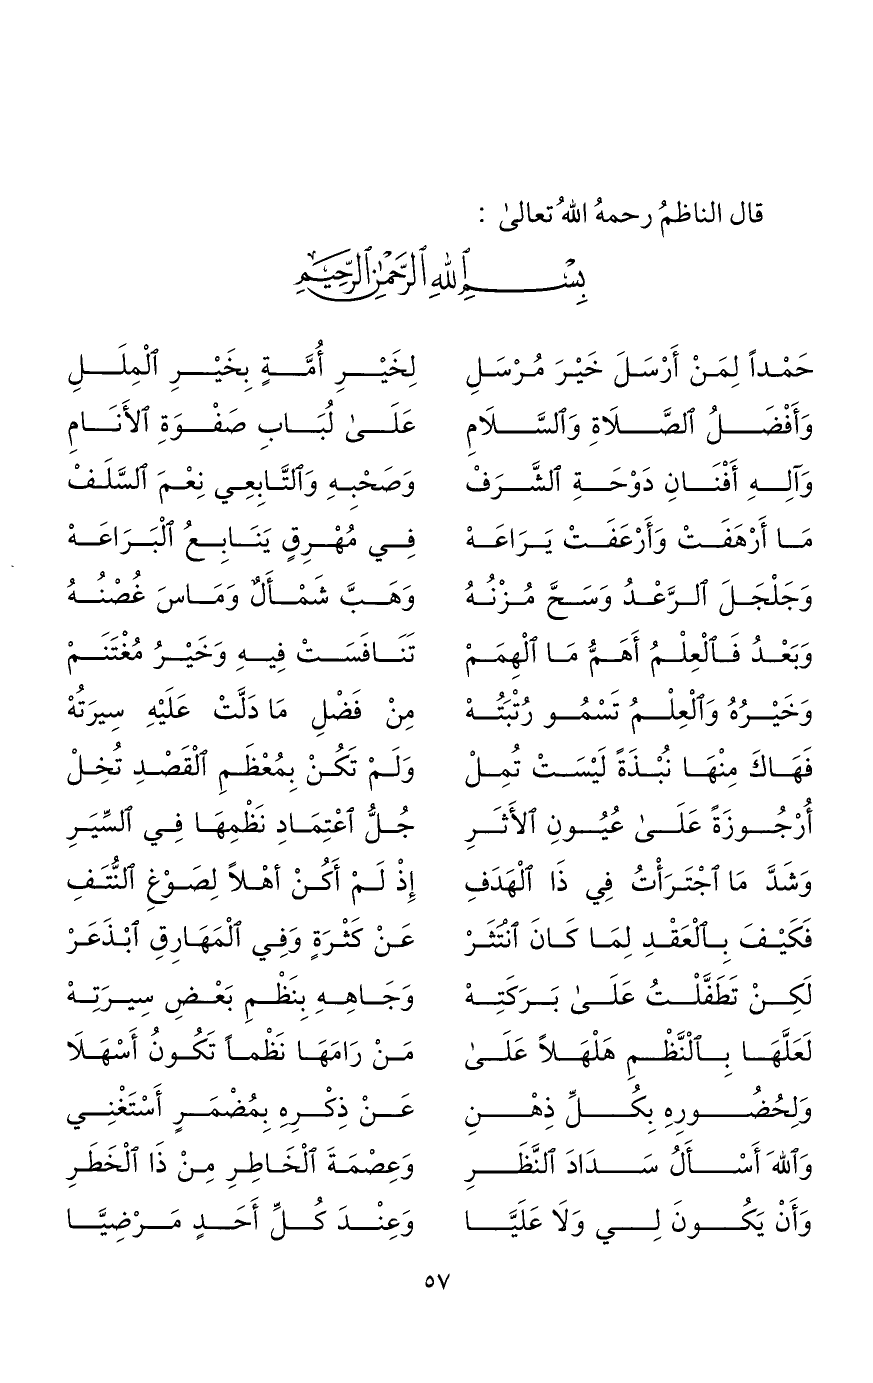 قال الناظمُ رحمهُ اللهُ تعالىٰ :
بِسْمِ ٱللهِ ٱلرَّحْمٰنِ ٱلرَّحِيْمِ
حَمْداً لِمَنْ أَرْسَلَ خَيْرَ مُرْسَلِ لِخَيْرِ أُمَّةٍ بِخَيْرِ ٱلْمِلَلِ
وَأَفْضَلُ ٱلصَّلَاةِ وَٱلسَّلَامِ عَلَىٰ لُبَابِ صَفْوَةِ ٱلأَنَامِ
وَآلِهِ أَفْنَانِ دَوْحَةِ ٱلشَّرَفْ وَصَحْبِهِ وَٱلتَّابِعِي نِعْمَ ٱلسَّلَفْ
مَا أَرْهَفَتْ وَأَرْعَفَتْ يَرَاعَهْ فِي مُهْرِقٍ يَنَابِعُ ٱلْبَرَاعَهْ
وَجَلْجَلَ ٱلرَّعْدُ وَسَحَّ مُزْنُهُ وَهَبَّ شَمْأَلٌ وَمَاسَ غُصْنُهُ
وَبَعْدُ فَٱلْعِلْمُ أَهَمُّ مَا ٱلْهِمَمْ تَنَافَسَتْ فِيهِ وَخَيْرُ مُغْتَنَمْ
وَخَيْرُهُ وَٱلْعِلْمُ تَسْمُو رُتْبَتُهْ مِنْ فَضْلِ مَا دَلَّتْ عَلَيْهِ سِيرَتُهْ
فَهَاكَ مِنْهَا نُبْذَةً لَيْسَتْ تُمِلْ وَلَمْ تَكُنْ بِمُعْظَمِ ٱلْقَصْدِ تُخِلْ
أُرْجُوزَةً عَلَىٰ عُيُونِ ٱلأَثَرِ جُلُّ ٱعْتِمَادِ نَظْمِهَا فِي ٱلسِّيَرِ
وَشَدَّ مَا ٱجْتَرَأْتُ فِي ذَا ٱلْهَدَفِ إِذْ لَمْ أَكُنْ أَهْلاً لِصَوْغِ ٱلنُّتَفِ
فَكَيْفَ بِٱلْعَقْدِ لِمَا كَانَ ٱنْتَثَرْ عَنْ كَثْرَةٍ وَفِي ٱلْمَهَارِقِ ٱبْذَعَرْ
لَكِنْ تَطَفَّلْتُ عَلَىٰ بَرَكَتِهْ وَجَاهِهِ بِنَظْمِ بَعْضِ سِيرَتِهْ
لَعَلَّهَا بِٱلنَّظْمِ هَلْهَلاً عَلَىٰ مَنْ رَامَهَا نَظْماً تَكُونُ أَسْهَلَا
وَلِحُضُورِهِ بِكُلِّ ذِهْنِ عَنْ ذِكْرِهِ بِمُضْمَرٍ أَسْتَغْنِي
وَٱللهَ أَسْأَلُ سَدَادَ ٱلنَّظَرِ وَعِصْمَةَ ٱلْخَاطِرِ مِنْ ذَا ٱلْخَطَرِ
وَأَنْ يَكُونَ لِي وَلَا عَلَيَّا وَعِنْدَ كُلِّ أَحَدٍ مَرْضِيَّا
٥٧